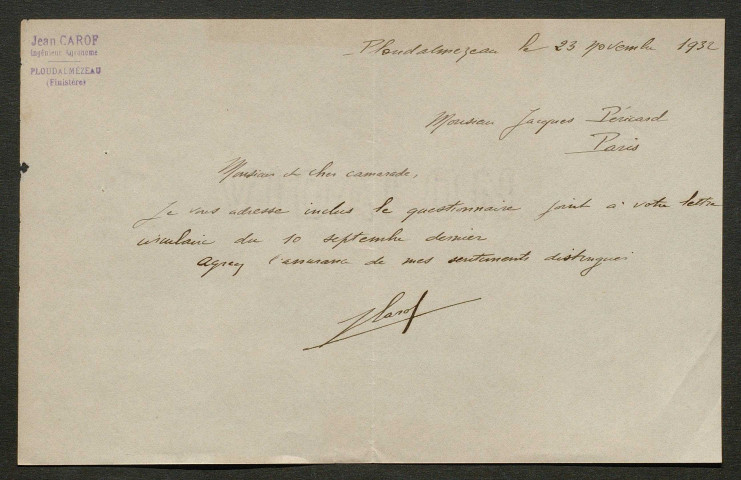 Jean CAROF
Ingénieur Agronome
PLOUDALMÉZEAU
(Finistère)
Ploudalmezeau le 23 Novembre 1932
Monsieur Jacques Péricard
Paris
Monsieur et cher camarade,
Je vous adresse inclus le questionnaire joint à votre lettre
circulaire du 10 septembre dernier
Agréez l'assurance de mes sentiments distingués
JCarof